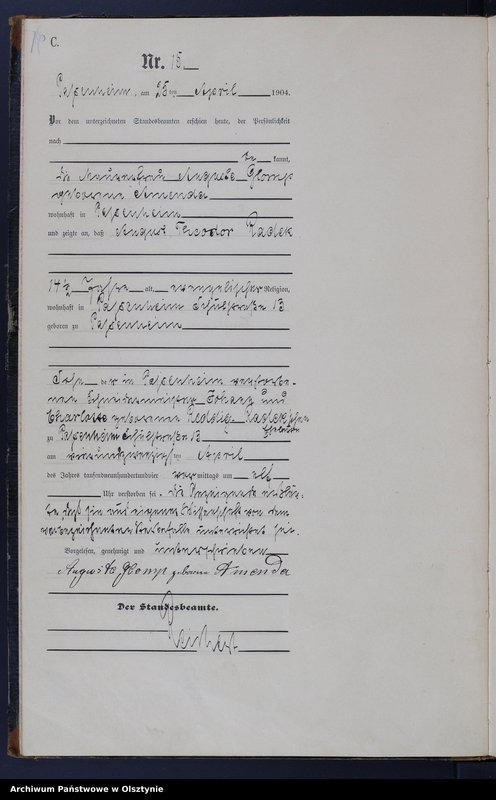 C.
Nr. 15.
Passenheim, am 25 ten April 1904.
Vor dem unterzeichneten Standesbeamten erschien heute, der Persönlichkeit
nach
be kannt,
die Maurersfrau Auguste Glomp
geborene Amenda
wohnhaft in Passenheim
und zeigte an, daß August Theodor Radek
14 1/2 Jahre alt, evangelischer Religion,
wohnhaft in Passenheim Schulstraße 13
geboren zu Passenheim
Sohn der in Passenheim verstorbe-
nen Schneidermeister Johann und
Charlotte geborenen Radek'schen
Eheleute
zu Passenheim Schulstraße 13
am vierundzwanzigsten April
des Jahres tausendneunhundertundvier vor mittags um elf
Uhr verstorben sei. Die Anzeigende erklär-
te, daß sie aus eigener Wissenschaft von dem
vorbezeichneten Sterbefalle unterrichtet sei.
Vorgelesen, genehmigt und unterschrieben
Auguste Glomp geborene Amenda
Der Standesbeamte.
Archiwum Państwowe w Olsztynie